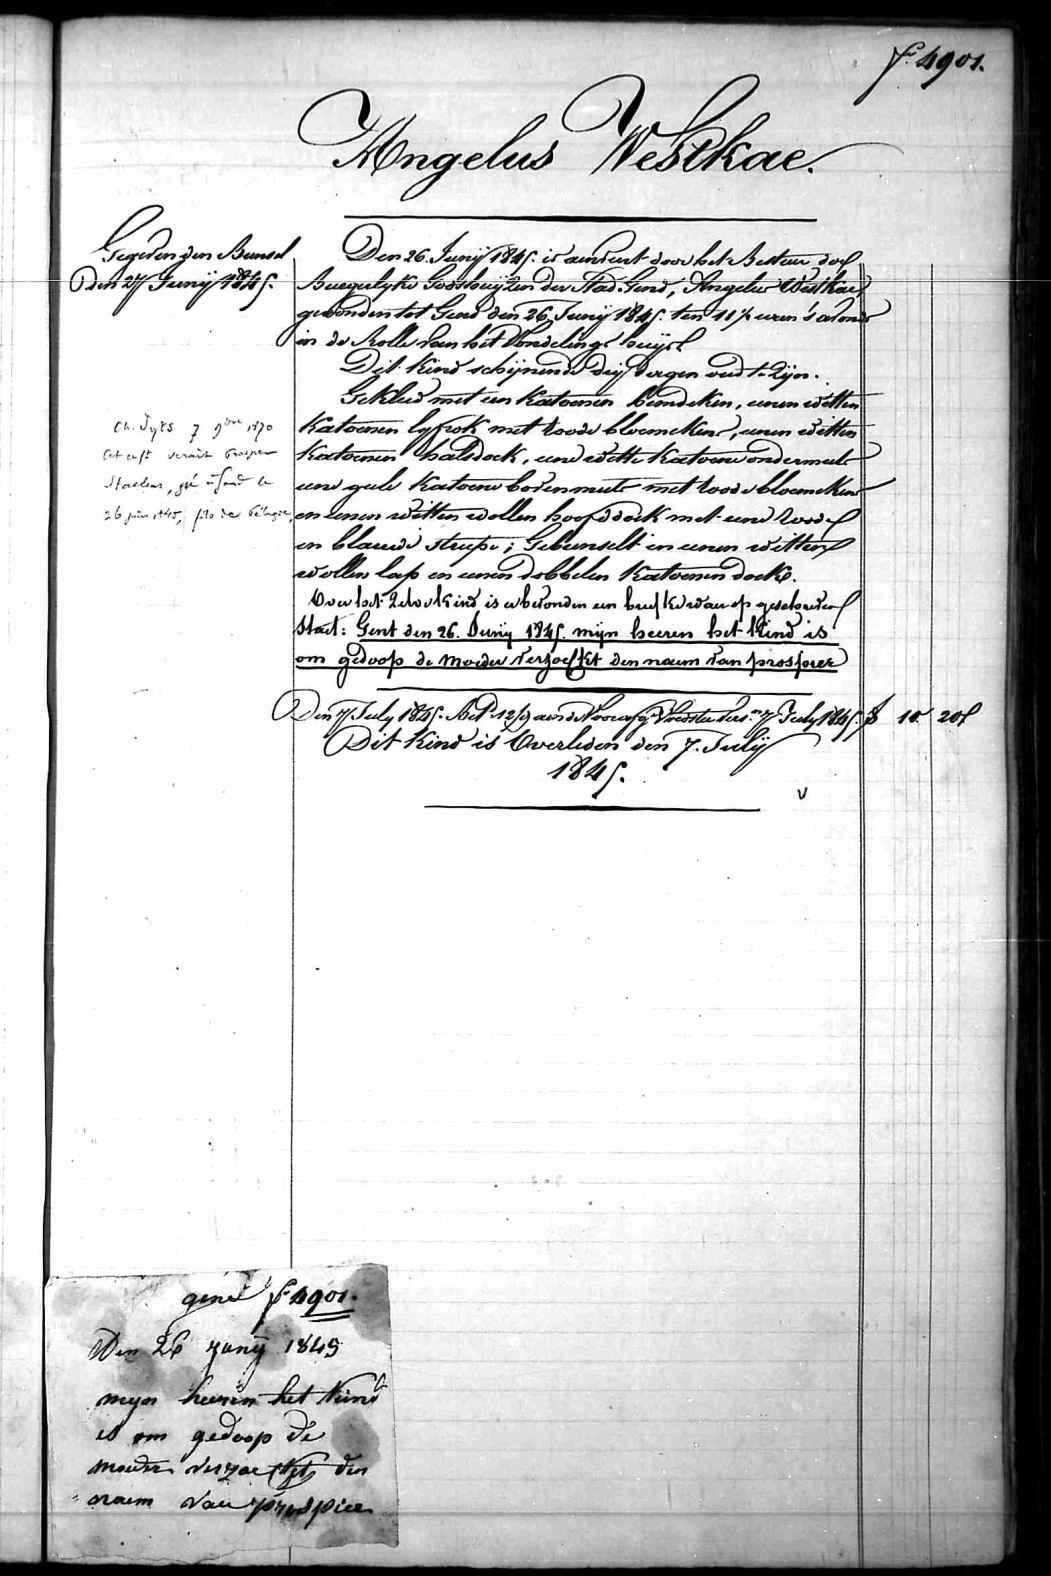 f.º 4901.
Angelus Westkae.
Gegeven den Bunsel
Den 27 Junij 1845.
Den 26. Junij 1845. is aenveert door het Bestuer der
Burgelyke Godshuijzen der Stad Gend, Angelus Westkae,
gevonden tot Gend den 26 Junij 1845. ten 11½ uren 's avonds
in de Rolle van het Vondelings huijs
Dit kind schijnende drij dagen oud te zijn.
Gekleed met een katoenen hemdeken, eenen witten
katoenen lyfrok met roode bloemekens, eenen witten
katoenen halsdoek, eene witte katoene ondermuts
eene gele katoene bovenmuts met roode bloemekens
en eenen witten wollen hoofddoek met eene roode
en blauwe strepe; Gebunselt in eenen witten
wollen lap en eenen dobbelen katoenen doek.
Over het zelve kind is er bevonden een briefke waer op geschreven
staet: Gent den 26. Junij 1845. mijn heeren het kind is
om gedoop de moeder verzoekt den naem van prosper
Ch. Fyts 7 9bre 1870
cet enft serait Prosper
26 juin 1845, fils de Pélagie
Den 7 July 1845. 7 July 1845. 10 20
Dit kind is Overleden den 7. Julij
1845.
v
gend f.º 4901.
Den 26 junij 1845
mijn heeren het kind
is om gedoop de
moeder verzoekt den
naem van prosper